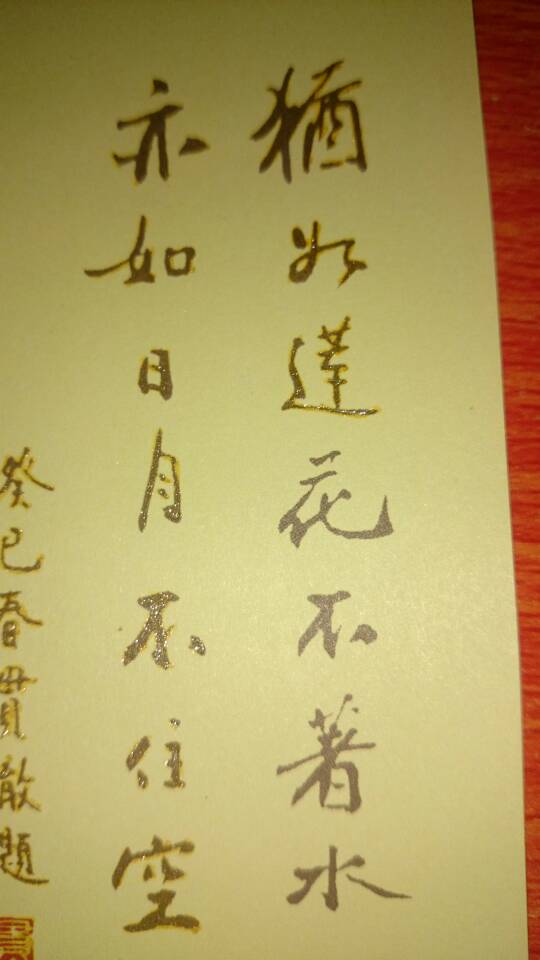 猶如蓮花不著水
亦如日月不住空
癸巳春貫敢題